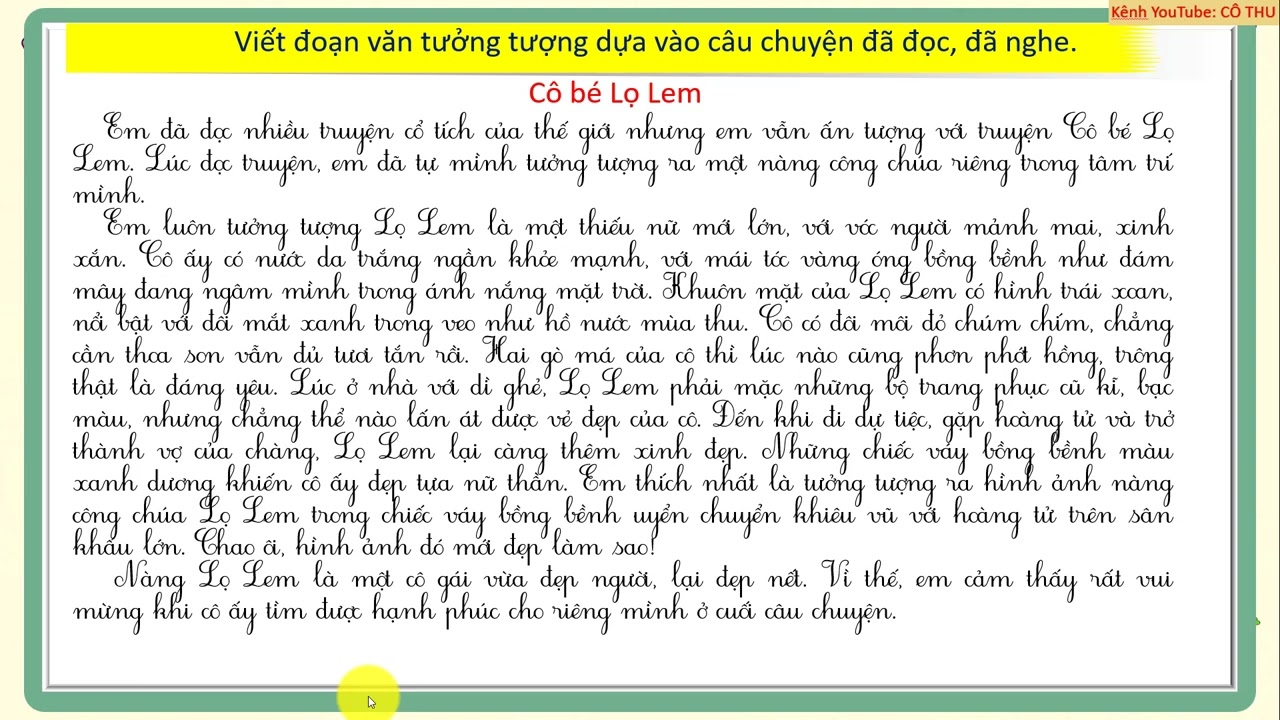 Kênh YouTube: CÔ THU
Viết đoạn văn tưởng tượng dựa vào câu chuyện đã đọc, đã nghe.
Cô bé Lọ Lem
Em đã đọc nhiều truyện cổ tích của thế giới nhưng em vẫn ấn tượng với truyện Cô bé Lọ
Lem. Lúc đọc truyện, em đã tự mình tưởng tượng ra một nàng công chúa riêng trong tâm trí
mình.
Em luôn tưởng tượng Lọ Lem là một thiếu nữ mới lớn, với vóc người mảnh mai, xinh
xắn. Cô ấy có nước da trắng ngần khỏe mạnh, với mái tóc vàng óng bồng bềnh như đám
mây đang ngâm mình trong ánh nắng mặt trời. Khuôn mặt của Lọ Lem có hình trái xoan,
nổi bật với đôi mắt xanh trong veo như hồ nước mùa thu. Cô có đôi môi đỏ chúm chím, chẳng
cần thoa son vẫn đủ tươi tắn rồi. Hai gò má của cô thì lúc nào cũng phơn phớt hồng, trông
thật là đáng yêu. Lúc ở nhà với dì ghẻ, Lọ Lem phải mặc những bộ trang phục cũ kĩ, bạc
màu, nhưng chẳng thể nào lấn át được vẻ đẹp của cô. Đến khi đi dự tiệc, gặp hoàng tử và trở
thành vợ của chàng, Lọ Lem lại càng thêm xinh đẹp. Những chiếc váy bồng bềnh màu
xanh dương khiến cô ấy đẹp tựa nữ thần. Em thích nhất là tưởng tượng ra hình ảnh nàng
công chúa Lọ Lem trong chiếc váy bồng bềnh uyển chuyển khiêu vũ với hoàng tử trên sân
khấu lớn. Chao ôi, hình ảnh đó mới đẹp làm sao!
Nàng Lọ Lem là một cô gái vừa đẹp người, lại đẹp nết. Vì thế, em cảm thấy rất vui
mừng khi cô ấy tìm được hạnh phúc cho riêng mình ở cuối câu chuyện.